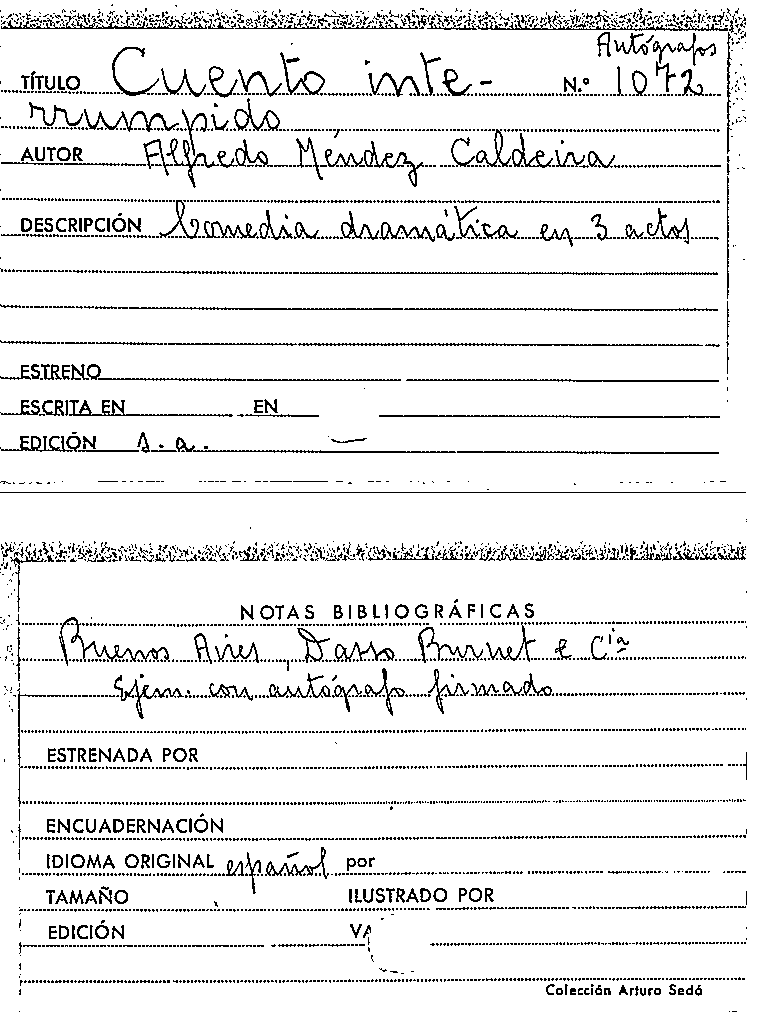 Autógrafos
TÍTULO Cuento inte- N.º 1072
rrumpido
AUTOR Alfredo Méndez Caldeira
DESCRIPCIÓN Comedia dramática en 3 actos
ESTRENO
ESCRITA EN EN
EDICIÓN s.a. —
NOTAS BIBLIOGRÁFICAS
Buenos Aires, Dasso Burnet & Cía
Ejem. con autógrafo firmado
ESTRENADA POR
ENCUADERNACIÓN
IDIOMA ORIGINAL español por
TAMAÑO ILUSTRADO POR
EDICIÓN
Colección Arturo Sedó